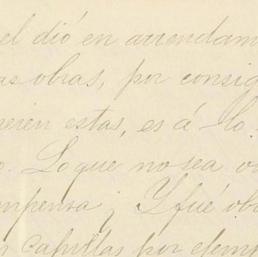 el dió en arrendam
as obras, por consig
eren estas, es á lo
o. Lo que no sea o
mpensa; Y fué ob
s capillas por ejemp